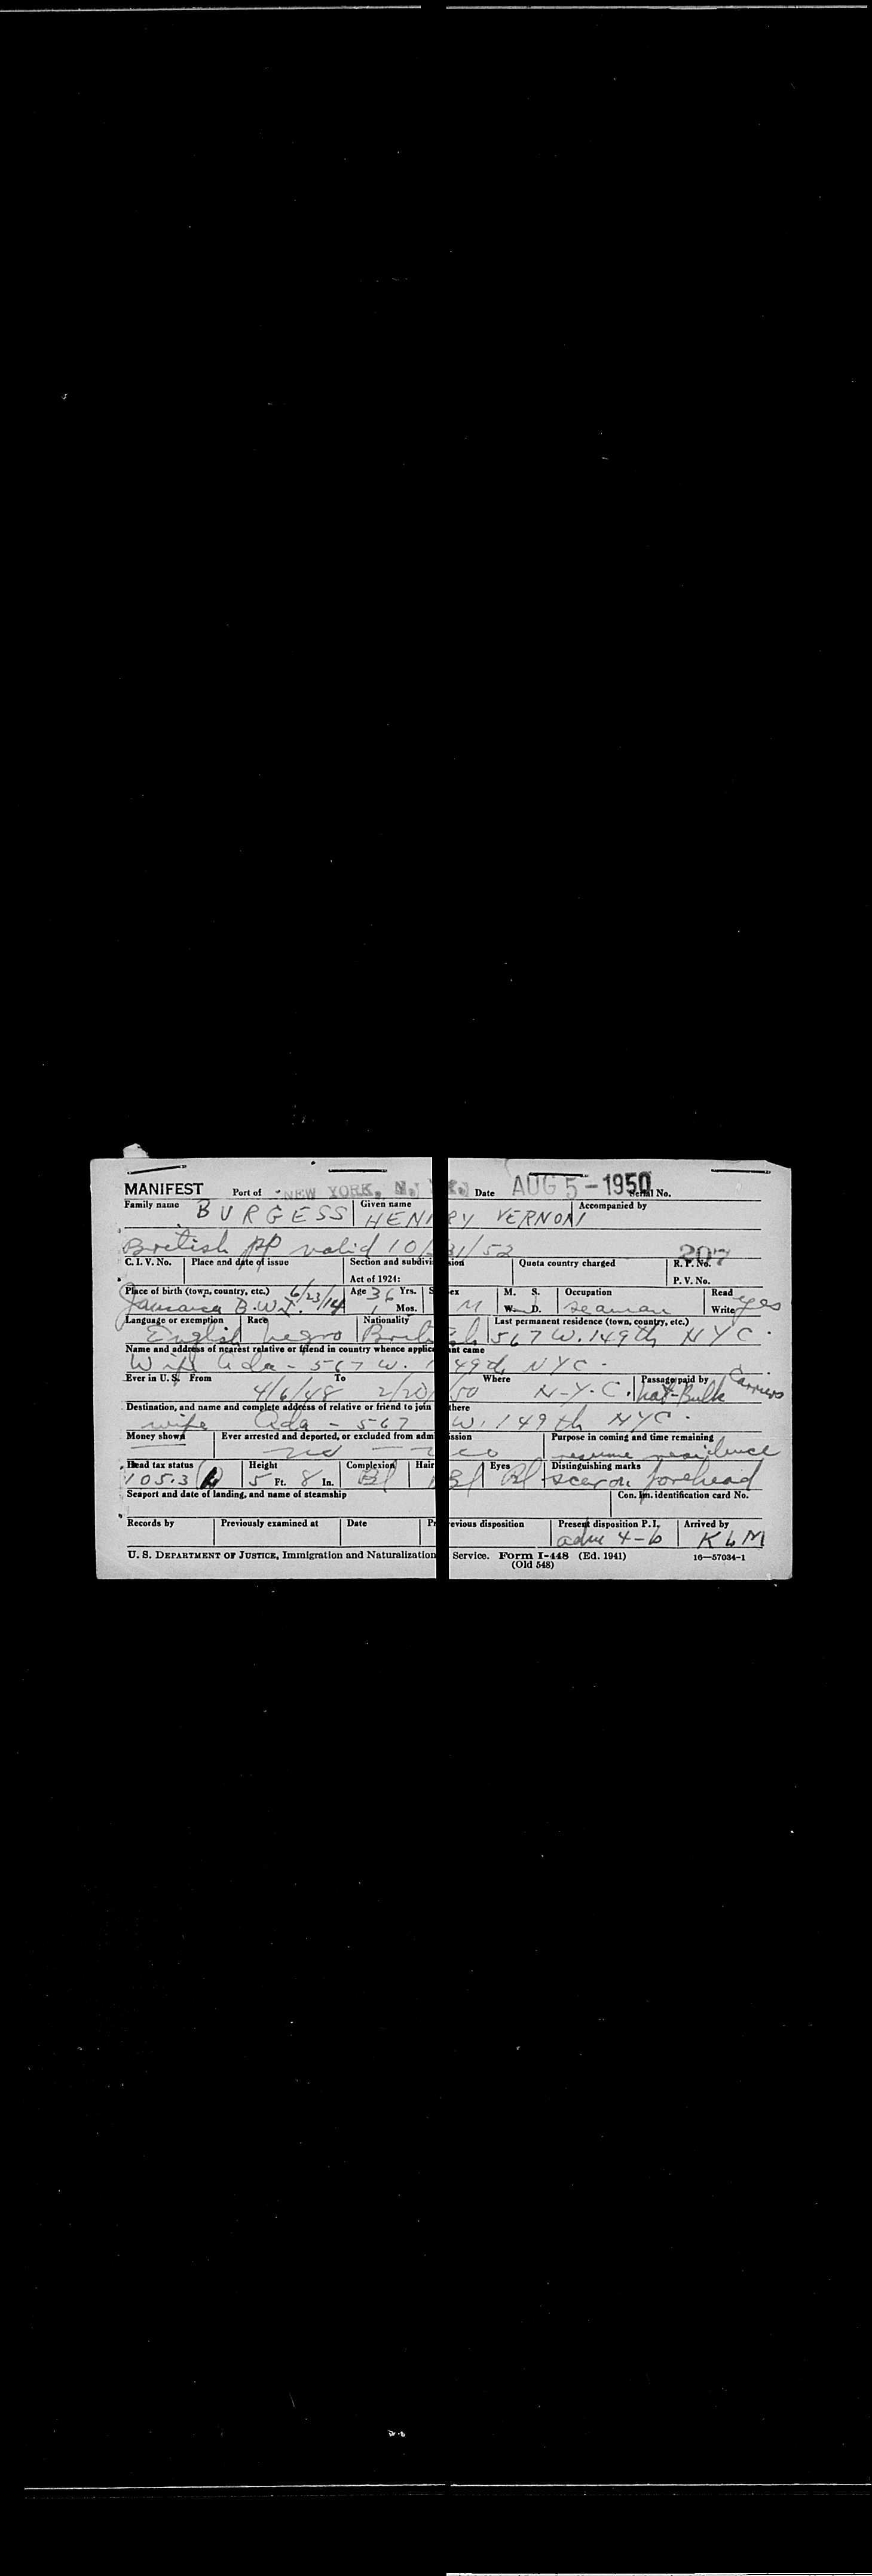 MANIFEST Port of NEW YORK, N. Y. Date AUG 5 - 1950 Serial No.
Family name Given name Accompanied by
BURGESS HENRY VERNON
British PP valid 10/31/52 207
C. I. V. No. Place and date of issue Section and subdivision Quota country charged R. P. No.
Act of 1924: P. V. No.
Place of birth (town, country, etc.) 6/23/14 Age 36 Yrs. Sex M. S. Occupation Read yes
Jamaica B.W.I. 1 Mos. M W. D. Seaman Write
Language or exemption Race Nationality Last permanent residence (town, country, etc.)
English Negro British 567 W. 149th NYC.
Name and address of nearest relative or friend in country whence applicant came
Wife Ada - 567 W. 149th NYC.
Ever in U. S. From To Where Passage paid by
4/6/48 2/20/50 N-Y-C. Nat-Bulk Carriers
Destination, and name and complete address of relative or friend to join there
wife Ada - 567 W. 149th NYC.
Money shown Ever arrested and deported, or excluded from admission Purpose in coming and time remaining
no - no resume residence
Head tax status Height Complexion Hair Eyes Distinguishing marks
105.3 5 Ft. 8 In. Bl Bl Bl scar on forehead
Seaport and date of landing, and name of steamship Con. Im. identification card No.
Records by Previously examined at Date Previous disposition Present disposition P. I. Arrived by
adm 4-b KLM
U. S. DEPARTMENT OF JUSTICE, Immigration and Naturalization Service. Form I-448 (Ed. 1941) 16—57034-1
(Old 548)